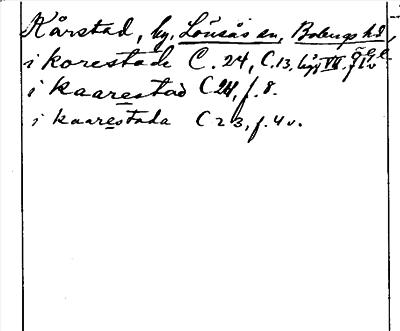 Kårstad, by, Lönsås sn, Bobergs hd,
i korestade C. 24, C.13, lägg VII. f 1 v ÖGL
i kaarestad C 24, f. 8.
i kaarestada C 23, f. 4 v.